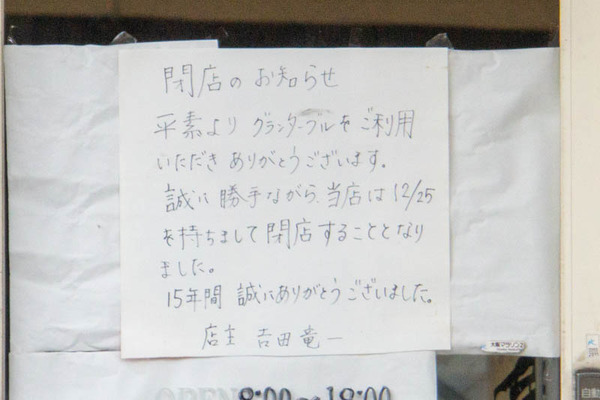 閉店のお知らせ
平素より グランターブルをご利用
いただき ありがとうございます。
誠に勝手ながら、当店は12/25
を持ちまして閉店することとなり
ました。
15年間 誠にありがとうございました。
店主 吉田竜一
大阪マラソン
OPEN 8:00〜18:00
自動